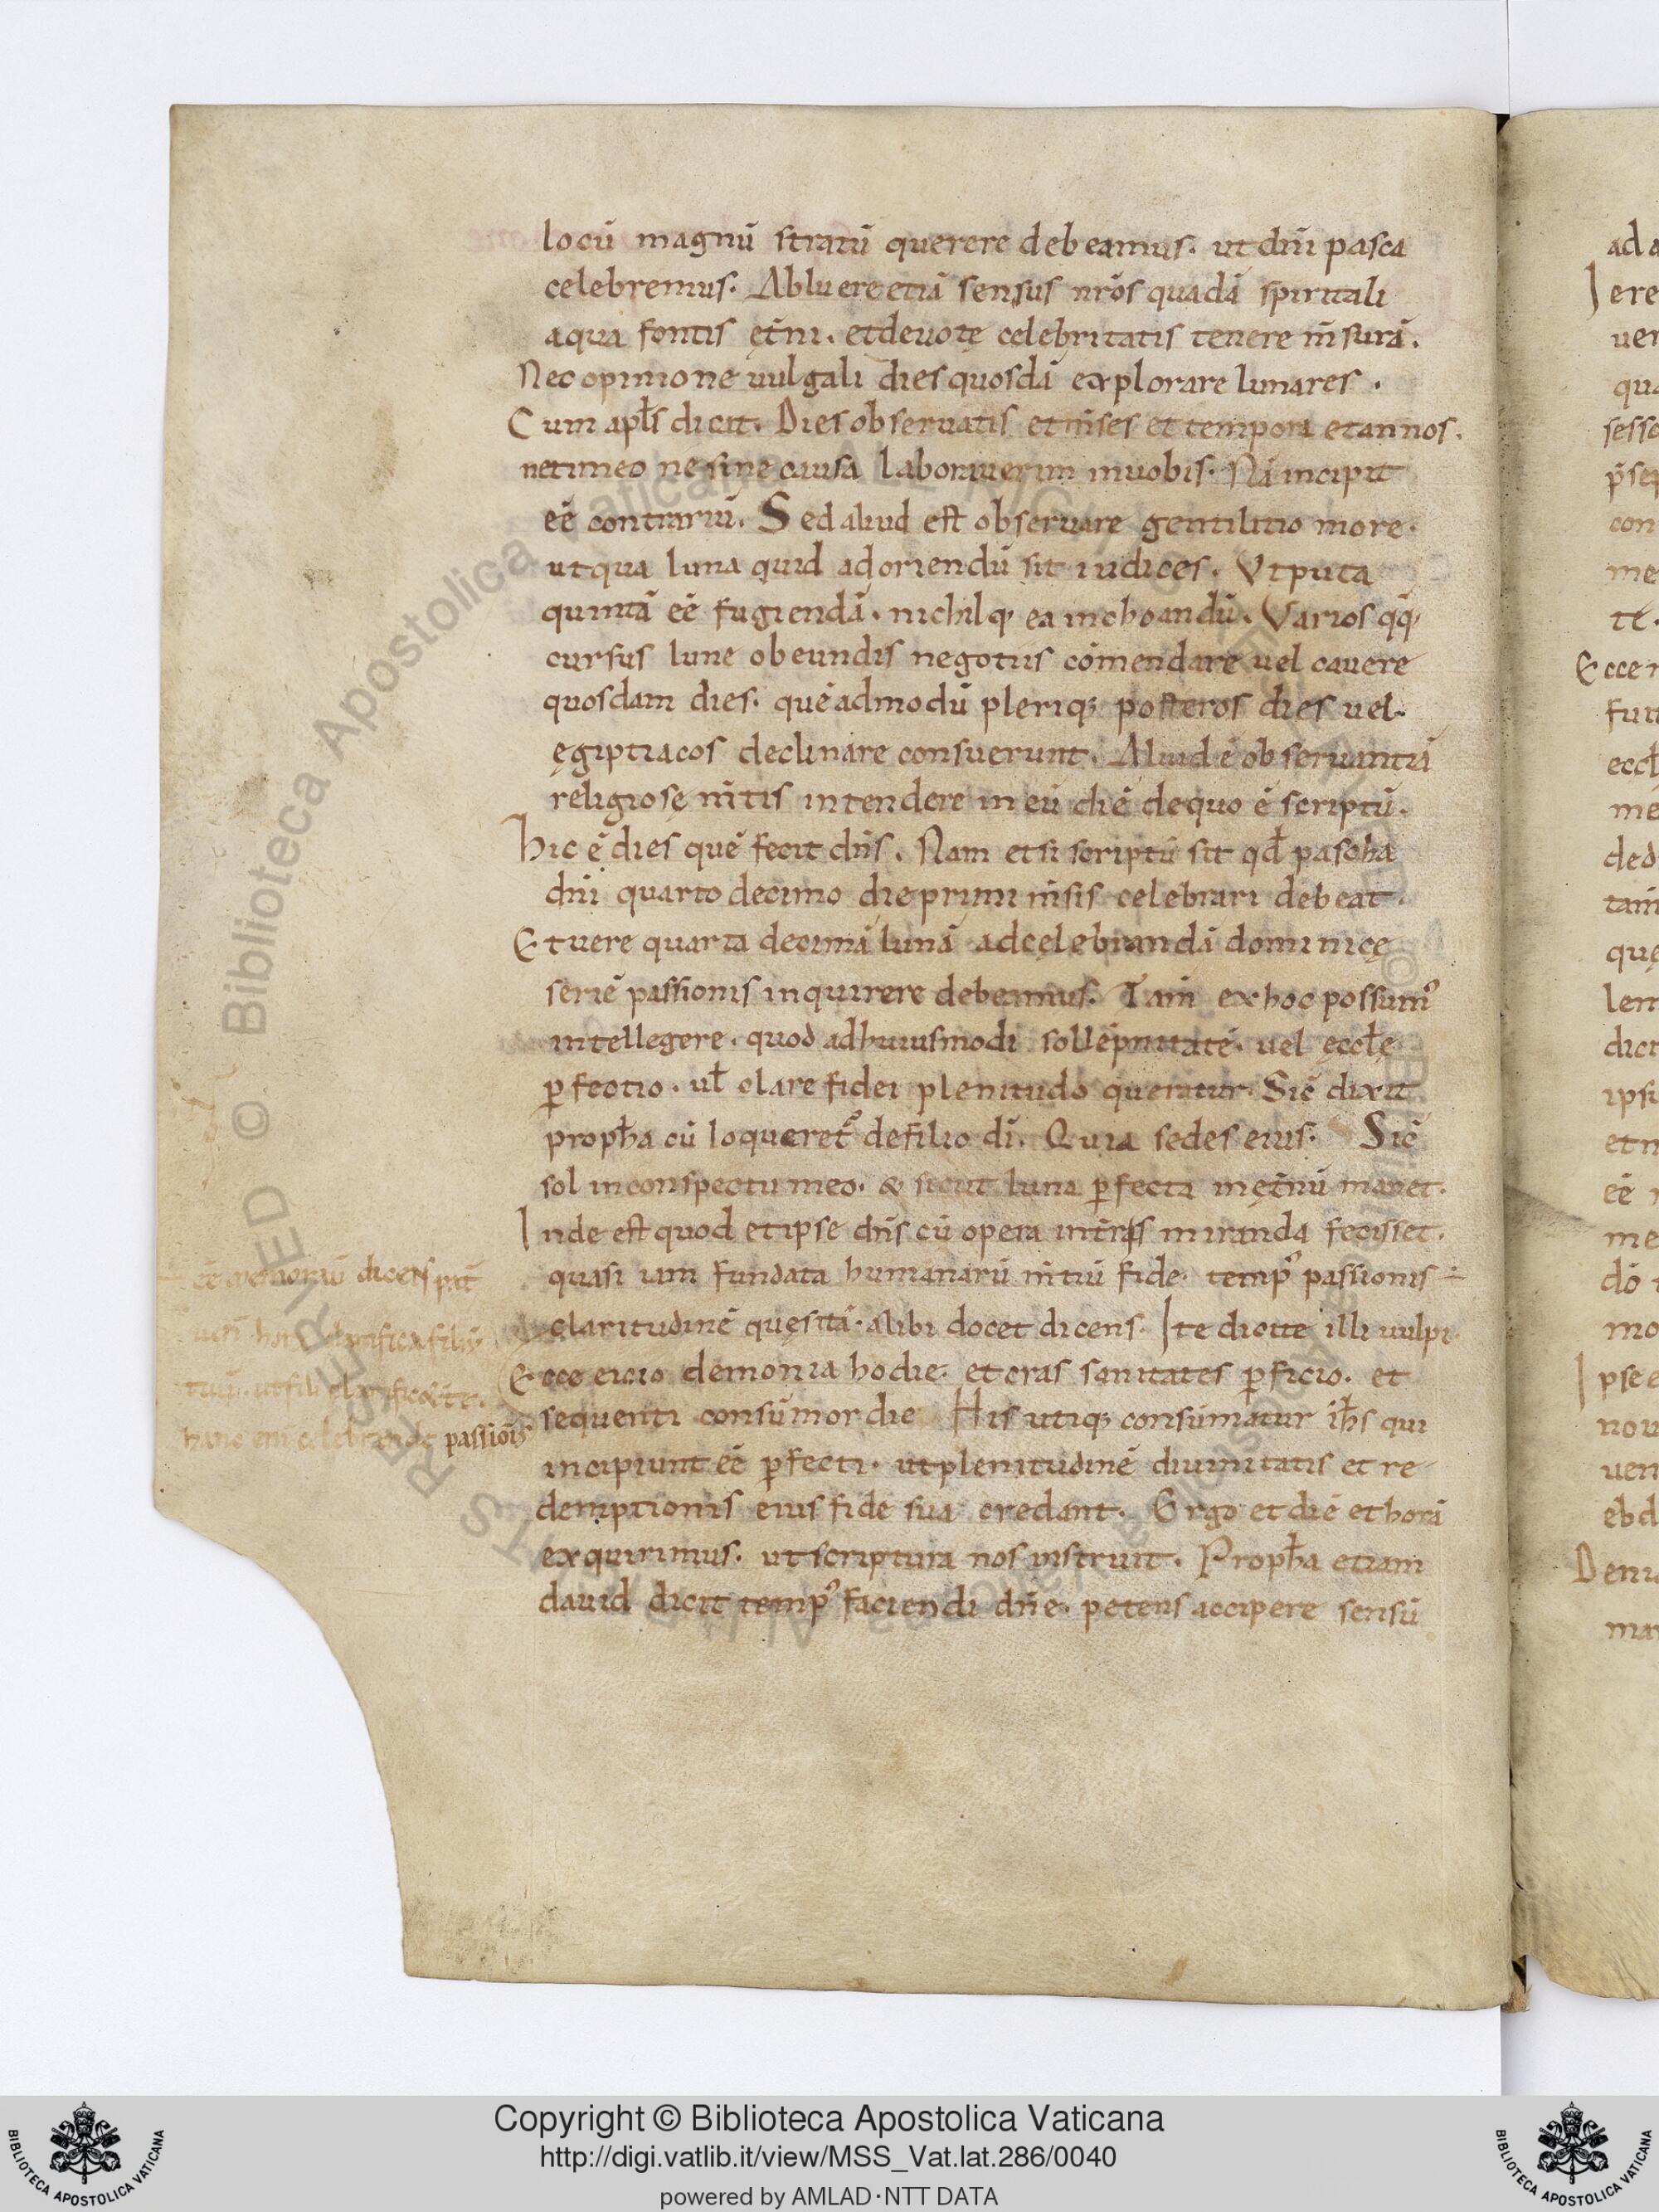 locū magnū stratū querere debeamus. ut dn̄i pasca
celebremus. Abluere etiā sensus nr̄os quadā spiritali
aqua fontis ęt̄ni. et deuotę celebritatis tenere m̄surā.
Nec opinione uulgali dies quosdā explorare lunares.
Cum apl̄s dicit. Dies obseruatis et m̄ses et tempora et annos.
et timeo ne sine causa laborauerim in uobis. Nā incipit
eē contrariū. Sed aliud est obseruare gentilitio more.
ut qua luna quid adoriendū sit iudices. Vtputa
quintā eē fugiendā. nichilq; ea inchoandū. Varios q;q;
cursus lune obeundis negotiis cōmendare uel cauere
quosdam dies. quēadmodū pleriq; posteros dies uel
ęgiptiacos declinare consuerunt. Aliud ē obseruantiā
religiosę m̄tis intendere in eū diē de quo ē scriptū.
Hic ē dies quē fecit dn̄s. Nam etsi scriptū sit qd̄ pascha
dn̄i quarto decimo die primi m̄sis celebrari debeat.
Et uere quarta decimā lunā ad cęlebrandā dominicę
seriē passionis inquirere debeamus. Tam̄ ex hoc possum᾽
intellegere. quod ad huiusmodi sollēpnitatē. uel ęccl̄ę
ꝑfectio. ul̄ clare fidei plenitudo queratur. Sic̄ dixit
proph̄a cū loqueret᾽ de filio dī. Quia sedes eius. Sic̄
sol in conspectu meo. & sicut luna ꝑfecta in ęt̄nū manet.
Inde est quod et ipse dn̄s cū opera int̄ris miranda fecisset.
quasi iam fundata humanarū m̄tiū fide. temp᾽ passionis ÷
claritudinē quęsitā. alibi docet dicens. Ite dicite illi uulpi.
Ecce eicio demonia hodie. et cras sanitates ꝑficio. et
sequenti consūmor die. His utiq; consūmatur ih̄s qui
incipiunt eē ꝑfecti. ut plenitudinē diuinitatis et re
demptionis eius fide sua credant. Ergo et diē et horā
exquirimus. ut scriptura nos instruit. Proph̄a etiam
dauid dicit temp᾽ faciendi dn̄e. petens accipere sensū
dicens pat̄
passiōis
ad a
Iere
uer
qua
sesse
con
me
te.
Ecce n
eccl̄
me
ded
tam̄
quę
lem
dict
ipsi
et n
eē
me
dō
mo
Ipse e
nou
uen
Denu
Copyright © Biblioteca Apostolica Vaticana
http://digi.vatlib.it/view/MSS_Vat.lat.286/0040
powered by AMLAD·NTT DATA
BIBLIOTECA APOSTOLICA VATICANA
BIBLIOTECA APOSTOLICA VATICANA